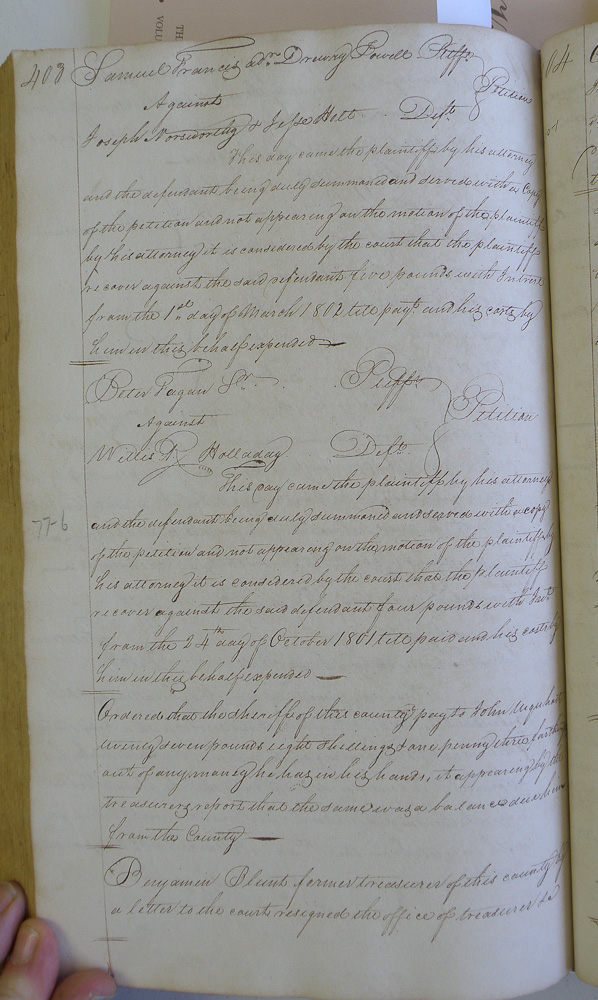 TH
VOLU
Th
403
Samuel Francis adr. Drewry Powell Plff
Petition
Against
Joseph Norsworthy & Jesse Holt Defts
This day came the plaintiff by his attorney
and the defendants being duly summoned and served with a Copy
of the petition and not appearing on the motion of the plaintiff
by his attorney it is considered by the court that the plaintiff
recover against the said defendants five pounds with Interest
from the 1st day of March 1802 till payt. and his costs by
him in this behalf expended
Peter Fagan Sr. Plaff
Petition
Against
Willis Holladay Deft
This day came the plaintiff by his attorney
77-6
and the defendant being duly summoned and served with a copy
of the petition and not appearing on the motion of the plaintiff by
his attorney it is considered by the court that the plaintiff
recover against the said defendant four pounds with Int
from the 24th day of October 1801 till paid and his costs by
him in this behalf expended
Ordered that the sheriff of this county pay to John Urquhart
twenty seven pounds eight shillings & one penny three farthing
out of any money he has in his hands, it appearing by the
treasurers report that the same was a balance due him
from the County
Benjamin Blunt former treasurer of this county by
a letter to the court resigned the office of treasurer &c
64